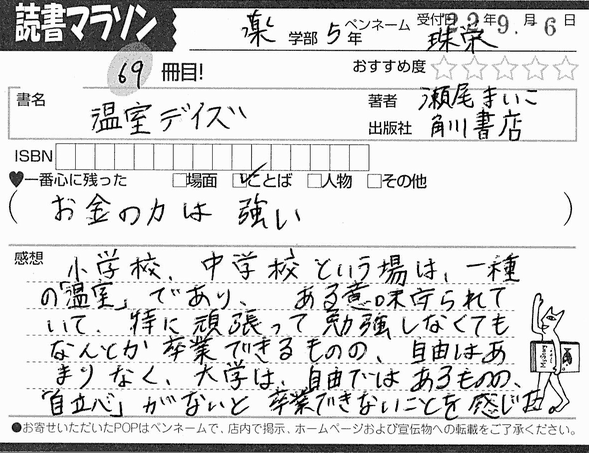 読書マラソン
薬 学部 5年 ペンネーム 珠栄 受付日 22年 9.月 6日
69 冊目! おすすめ度 ☆☆☆☆☆
書名 温室デイズ
著者 瀬尾まいこ
出版社 角川書店
ISBN
♥一番心に残った □場面 ☑ことば □人物 □その他
(お金の力は 強い)
感想 小学校、中学校という場は、一種
の「温室」であり、ある意味守られて
いて、特に頑張って勉強しなくても
なんとか卒業できるものの、自由はあ
まりなく、大学は、自由ではあるものの、
「自立心」がないと卒業できないことを感じた。
●お寄せいただいたPOPはペンネームで、店内で掲示、ホームページおよび宣伝物への転載をご了承ください。